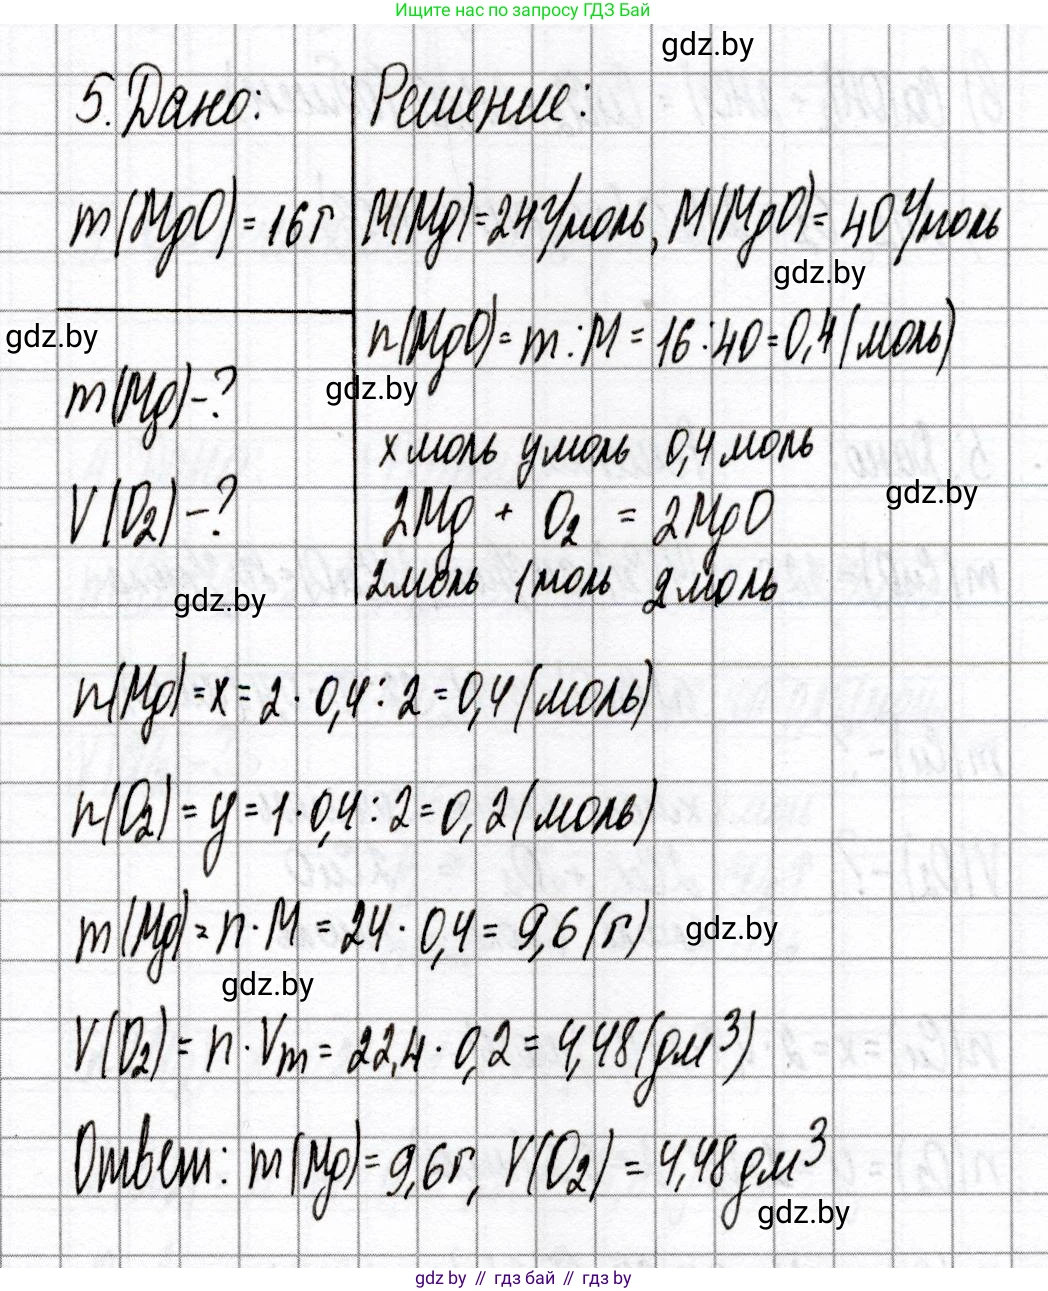 Ищите нас по запросу ГДЗ Бай
gdz.by
5. Дано: Решение:
m(MgO) = 16 г M(Mg) = 24 г/моль, M(MgO) = 40 г/моль
gdz.by
n(MgO) = m : M = 16 : 40 = 0,4 (моль)
gdz.by
m(Mg) - ?
gdz.by
x моль y моль 0,4 моль
V(O₂) - ?
gdz.by
2Mg + O₂ = 2MgO
2 моль 1 моль 2 моль
gdz.by
n(Mg) = x = 2 · 0,4 : 2 = 0,4 (моль)
n(O₂) = y = 1 · 0,4 : 2 = 0,2 (моль)
m(Mg) = n · M = 24 · 0,4 = 9,6 (г)
gdz.by
gdz.by
V(O₂) = n · Vm = 22,4 · 0,2 = 4,48 (дм³)
Ответ: m(Mg) = 9,6 г, V(O₂) = 4,48 дм³
gdz.by
gdz by // гдз бай // gdz.by